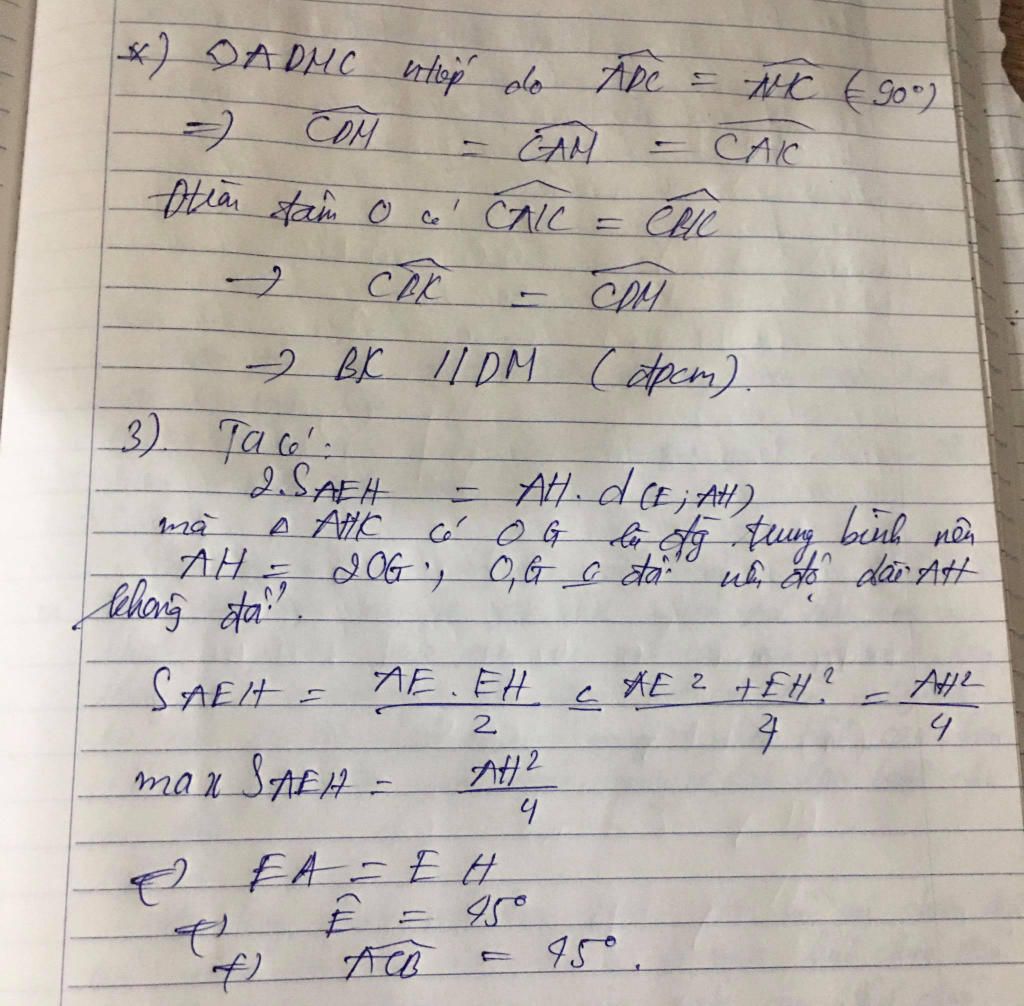 *) ◊ADMC ntiếp do \widehat{ADC} = \widehat{AMC} (=90°)
=> \widehat{CDM} = \widehat{CAM} = \widehat{CAK}
tâm O có \widehat{CAK} = \widehat{CBK}
→ \widehat{CBK} = \widehat{CDM}
→ BK // DM (đpcm).
3). Ta có:
2.S AEH = AH. d(E; AH)
mà Δ AHK có OG là đg trung bình nên
AH = 2OG; O,G cđ nên độ dài AH
không đổi.
S AEH = \frac{AE . EH}{2} ≤ \frac{AE^2 + EH^2}{4} = \frac{AH^2}{4}
max S AEH = \frac{AH^2}{4}
<=> EA = EH
<=> \widehat{E} = 45°
<=> \widehat{ACB} = 45°.